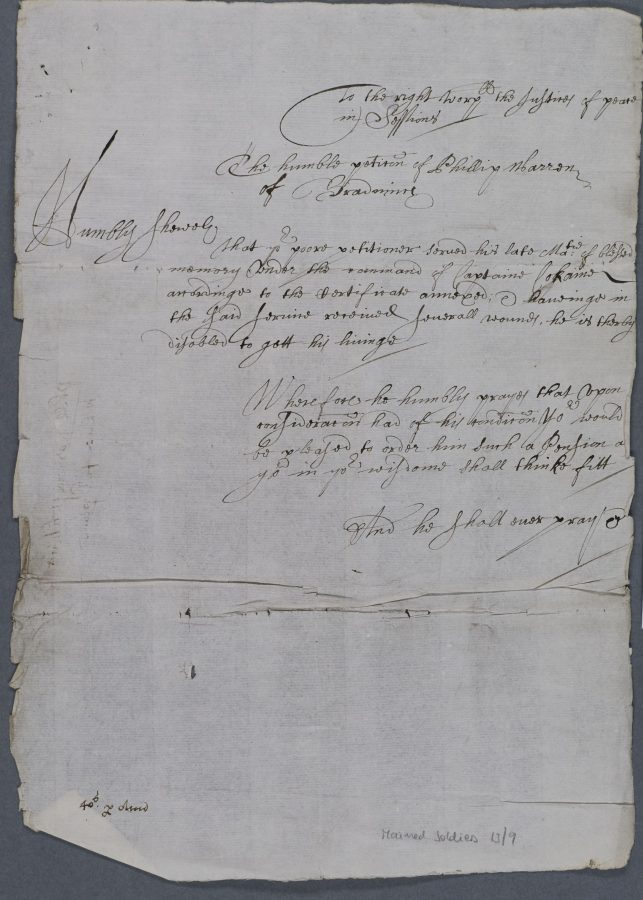 To the right worp:ll the Justices of peace
in Sessions
The humble peticon of Phillip Warren
of Bradninch
Humbly sheweth
That yr poore petitioner served his late Matie of blessed
memory vnder the command of Captaine Cokaine
accordinge to the Certificate annexed, & haveinge in
the said service received severall wounds, he is therby
disabled to gett his livinge
Wherefore he humbly prayes that vpon
consideracon had of his condicon yo would
be pleased to order him such a Pension a
yo in yor wisdome shall thinke fitt
And he shall ever pray &
40s p Annd
Maimed Soldiers 13/9